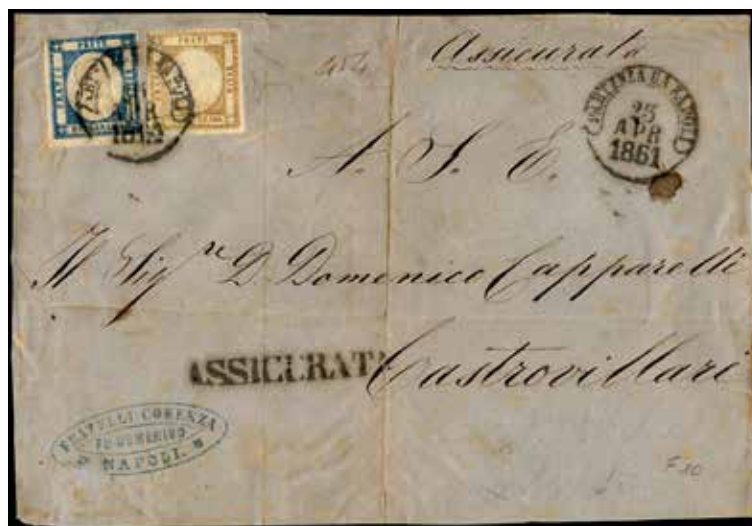 Assicurata
PARTENZA DA NAPOLI
25
APR
1861
A. S. E.
Il Sig.re D. Domenico Capparelli
ASSICURATA
Castrovillari
FRATELLI COSENZA
FU DOMENICO
NAPOLI.